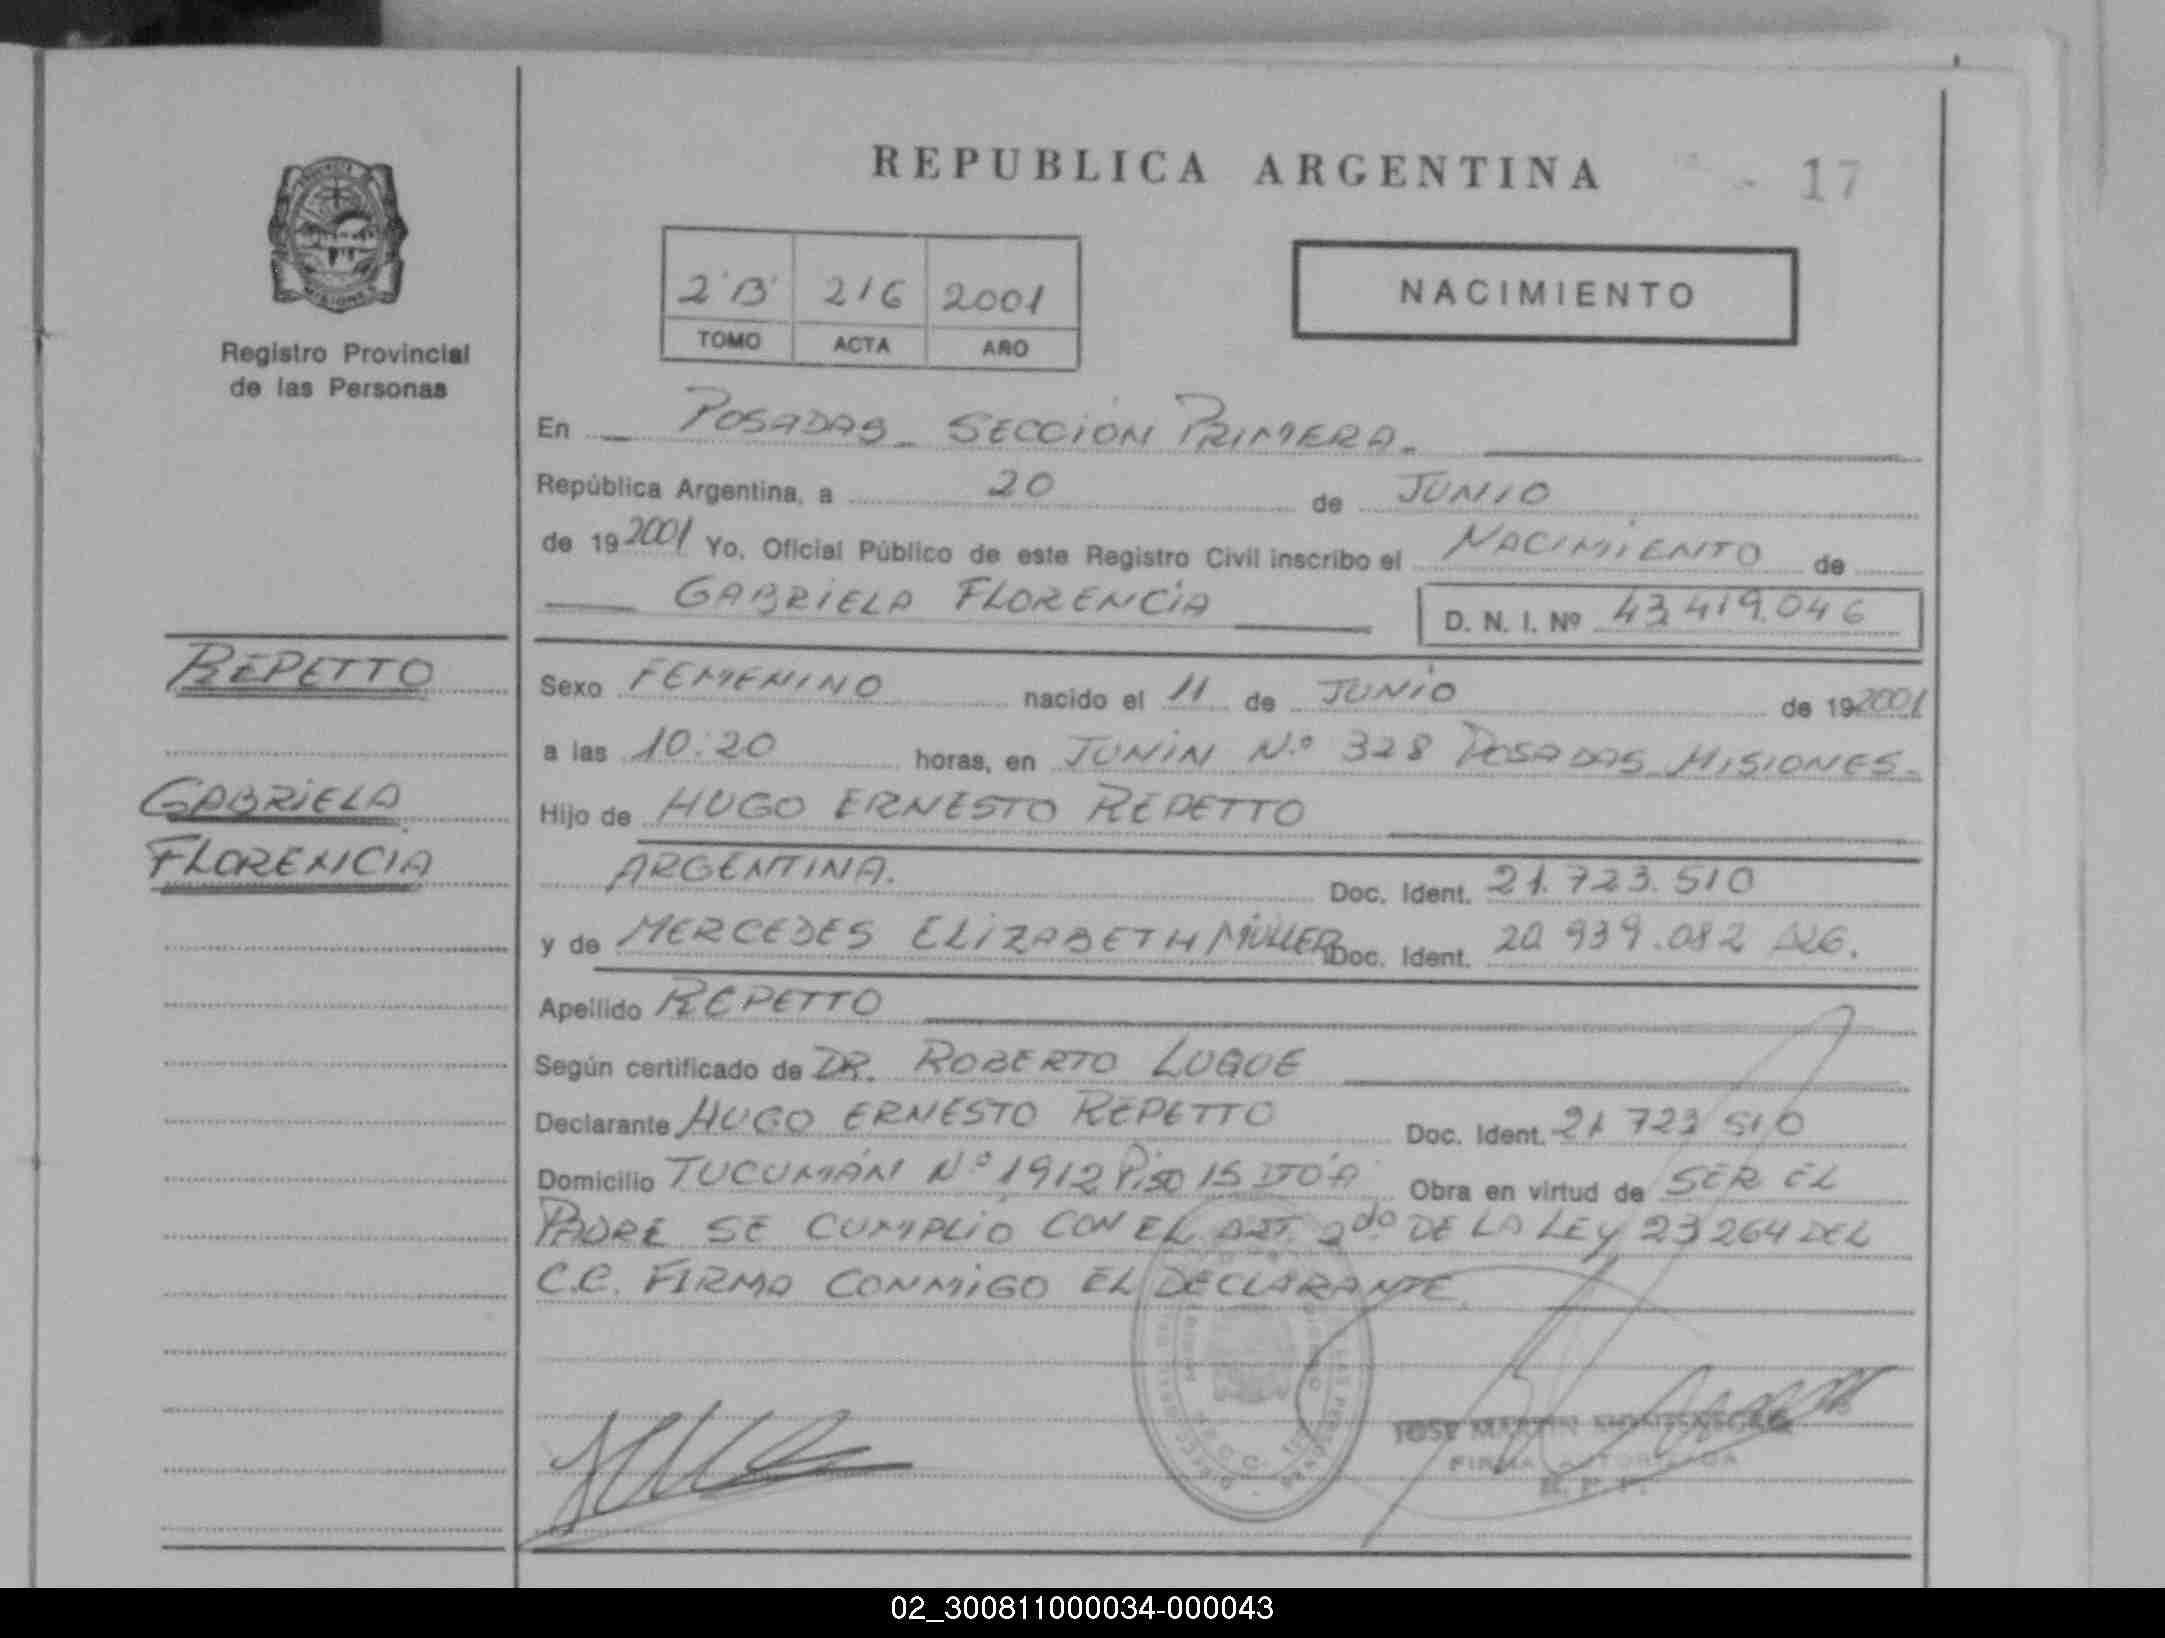 REPUBLICA ARGENTINA
17
2 "B" 216 2001
TOMO ACTA AÑO
NACIMIENTO
MISIONES
Registro Provincial
de las Personas
En POSADAS - SECCIÓN PRIMERA.
República Argentina, a 20 de JUNIO
de 19 2001 Yo, Oficial Público de este Registro Civil inscribo el NACIMIENTO de
GABRIELA FLORENCIA D. N. I. Nº 43.419.046
REPETTO
GABRIELA
FLORENCIA
Sexo FEMENINO nacido el 11 de JUNIO de 19 2001
a las 10:20 horas, en JUNÍN N.º 328 POSADAS MISIONES-
Hijo de HUGO ERNESTO REPETTO
ARGENTINA. Doc. Ident. 21.723.510
y de MERCEDES ELIZABETH MÜLLER Doc. Ident. 20.939.082 ARG.
Apellido REPETTO
Según certificado de DR. ROBERTO LUQUE
Declarante HUGO ERNESTO REPETTO Doc. Ident. 21 723 510
Domicilio TUCUMÁN Nº 1912 Piso 15 DTO "A" Obra en virtud de SER EL
PADRE SE CUMPLIÓ CON EL ART. 2do DE LA LEY 23264 DEL
C.C. FIRMA CONMIGO EL DECLARANTE.
JOSE MARTIN
FIRMA AUTORIZADA
R. P. P.
02_300811000034-000043